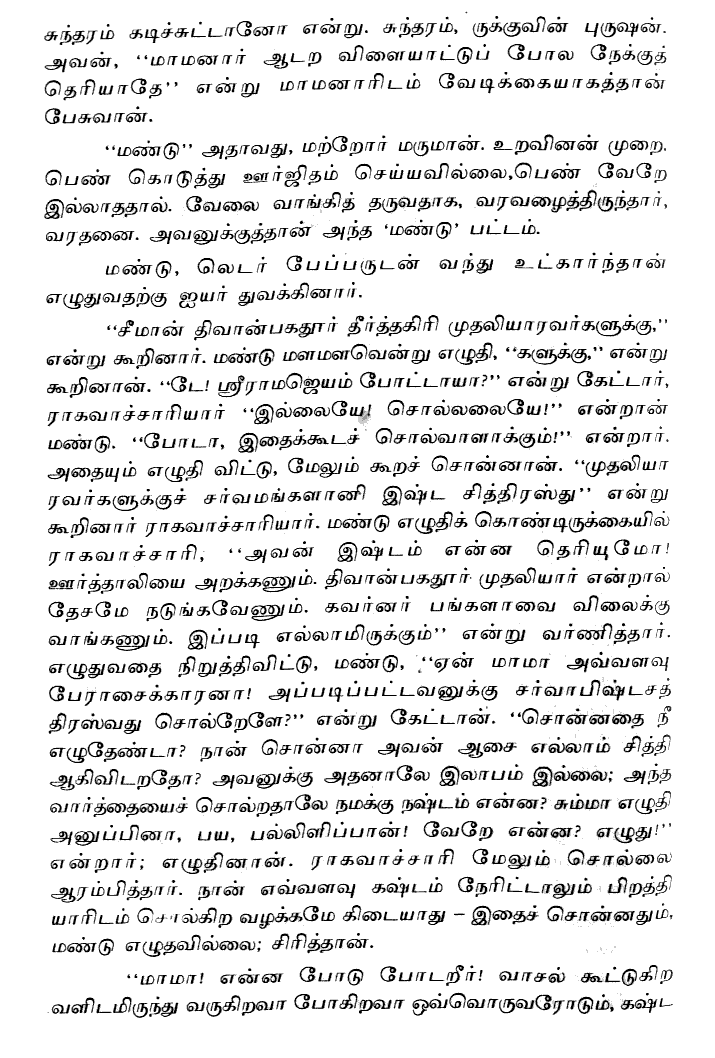 சுந்தரம் கடிச்சுட்டானோ என்று. சுந்தரம், ருக்குவின் புருஷன்.
அவன், ‘‘மாமனார் ஆடற விளையாட்டுப் போல நேக்குத்
தெரியாதே’’ என்று மாமனாரிடம் வேடிக்கையாகத்தான்
பேசுவான்.
‘‘மண்டு’’ அதாவது, மற்றோர் மருமான். உறவினன் முறை.
பெண் கொடுத்து ஊர்ஜிதம் செய்யவில்லை,பெண் வேறே
இல்லாததால். வேலை வாங்கித் தருவதாக, வரவழைத்திருந்தார்,
வரதனை. அவனுக்குத்தான் அந்த ‘மண்டு’ பட்டம்.
மண்டு, லெடர் பேப்பருடன் வந்து உட்கார்ந்தான்
எழுதுவதற்கு ஐயர் துவக்கினார்.
‘‘சீமான் திவான்பகதூர் தீர்த்தகிரி முதலியாரவர்களுக்கு,’’
என்று கூறினார். மண்டு மளமளவென்று எழுதி, ‘‘களுக்கு,’’ என்று
கூறினான். ‘‘டே! ஸ்ரீராமஜெயம் போட்டாயா?’’ என்று கேட்டார்,
ராகவாச்சாரியார் ‘‘இல்லையே! சொல்லலையே!’’ என்றான்
மண்டு. ‘‘போடா, இதைக்கூடச் சொல்வாளாக்கும்!’’ என்றார்.
அதையும் எழுதி விட்டு, மேலும் கூறச் சொன்னான். ‘‘முதலியா
ரவர்களுக்குச் சர்வமங்களானி இஷ்ட சித்திரஸ்து’’ என்று
கூறினார் ராகவாச்சாரியார். மண்டு எழுதிக் கொண்டிருக்கையில்
ராகவாச்சாரி, ‘‘அவன் இஷ்டம் என்ன தெரியுமோ!
ஊர்த்தாலியை அறக்கணும். திவான்பகதூர் முதலியார் என்றால்
தேசமே நடுங்கவேணும். கவர்னர் பங்களாவை விலைக்கு
வாங்கணும். இப்படி எல்லாமிருக்கும்’’ என்று வர்ணித்தார்.
எழுதுவதை நிறுத்திவிட்டு, மண்டு, ‘‘ஏன் மாமா அவ்வளவு
பேராசைக்காரனா! அப்படிப்பட்டவனுக்கு சர்வாபிஷ்டசத்
திரஸ்வது சொல்றேளே?’’ என்று கேட்டான். ‘‘சொன்னதை நீ
எழுதேண்டா? நான் சொன்னா அவன் ஆசை எல்லாம் சித்தி
ஆகிவிடறதோ? அவனுக்கு அதனாலே இலாபம் இல்லை; அந்த
வார்த்தையைச் சொல்றதாலே நமக்கு நஷ்டம் என்ன? சும்மா எழுதி
அனுப்பினா, பய, பல்லிளிப்பான்! வேறே என்ன? எழுது!’’
என்றார்; எழுதினான். ராகவாச்சாரி மேலும் சொல்லை
ஆரம்பித்தார். நான் எவ்வளவு கஷ்டம் நேரிட்டாலும் பிறத்தி
யாரிடம் சொல்கிற வழக்கமே கிடையாது – இதைச் சொன்னதும்,
மண்டு எழுதவில்லை; சிரித்தான்.
‘‘மாமா! என்ன போடு போடறீர்! வாசல் கூட்டுகிற
வளிடமிருந்து வருகிறவா போகிறவா ஒவ்வொருவரோடும், கஷ்ட